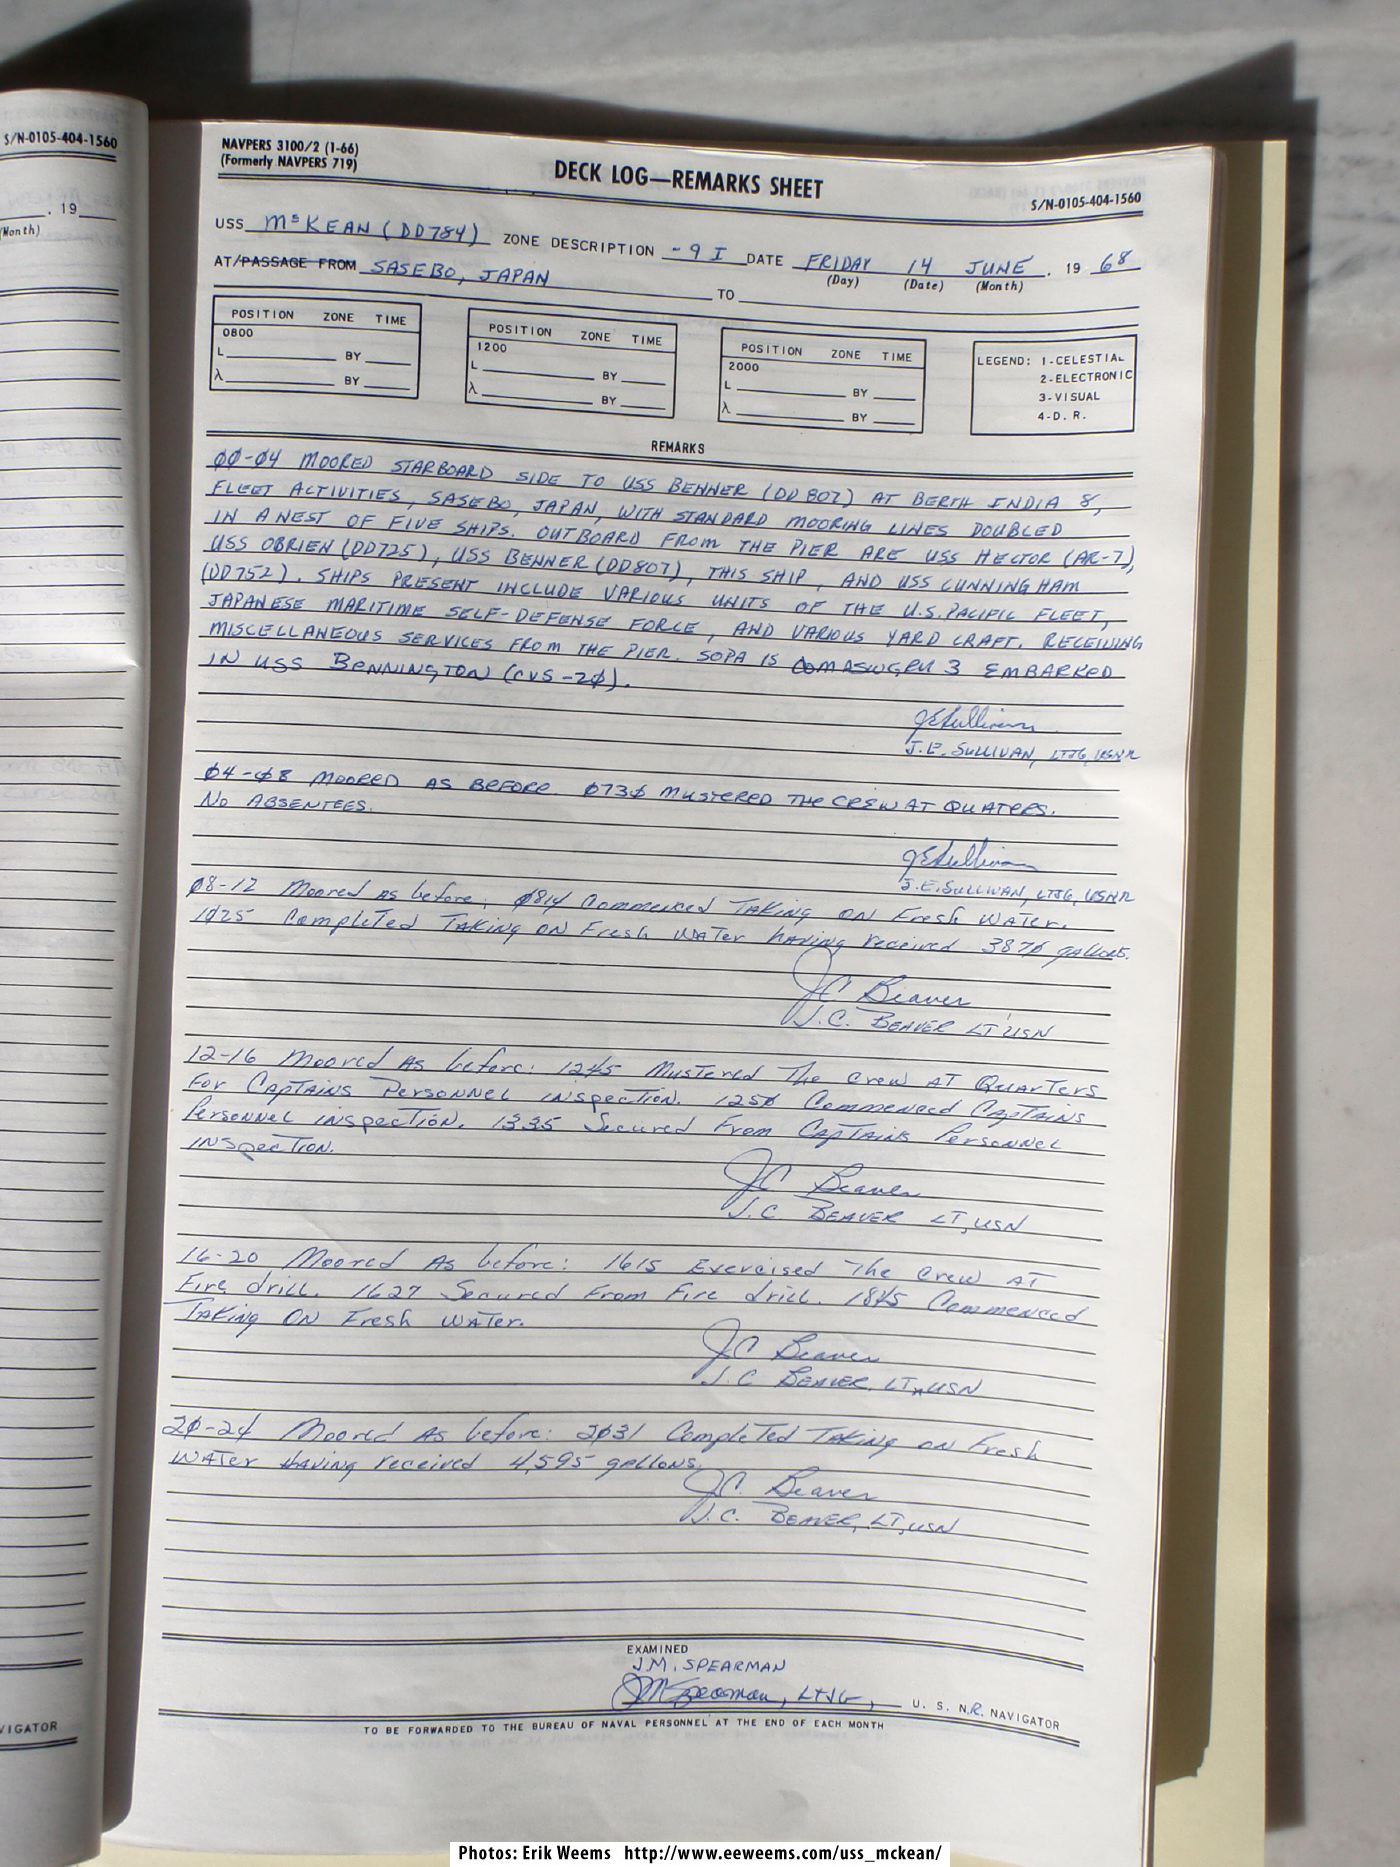 S/N-0105-404-1560
, 19
(Month)
VIGATOR
NAVPERS 3100/2 (1-66)
(Formerly NAVPERS 719)
DECK LOG—REMARKS SHEET
S/N-0105-404-1560
USS McKEAN (DD784) ZONE DESCRIPTION -9 I DATE FRIDAY 14 JUNE, 19 68
(Day) (Date) (Month)
AT/PASSAGE FROM SASEBO, JAPAN TO
POSITION ZONE TIME
0800
L BY
λ BY
POSITION ZONE TIME
1200
L BY
λ BY
POSITION ZONE TIME
2000
L BY
λ BY
LEGEND: 1-CELESTIAL
2-ELECTRONIC
3-VISUAL
4-D. R.
REMARKS
ØØ-Ø4 MOORED STARBOARD SIDE TO USS BENNER (DD 807) AT BERTH INDIA 8,
FLEET ACTIVITIES, SASEBO, JAPAN, WITH STANDARD MOORING LINES DOUBLED
IN A NEST OF FIVE SHIPS. OUTBOARD FROM THE PIER ARE USS HECTOR (AR-7),
USS OBRIEN (DD725), USS BENNER (DD807), THIS SHIP, AND USS CUNNINGHAM
(DD752). SHIPS PRESENT INCLUDE VARIOUS UNITS OF THE U.S. PACIFIC FLEET,
JAPANESE MARITIME SELF-DEFENSE FORCE, AND VARIOUS YARD CRAFT. RECEIVING
MISCELLANEOUS SERVICES FROM THE PIER. SOPA IS COMASWGRU 3 EMBARKED
IN USS BENNINGTON (CVS-2Ø).
JESullivan
J.E. SULLIVAN, LTJG, USNR
Ø4-Ø8 MOORED AS BEFORE. Ø73Ø MUSTERED THE CREW AT QUATERS.
NO ABSENTEES.
JESullivan
J.E. SULLIVAN, LTJG, USNR
Ø8-12 Moored As before: Ø814 Commenced Taking on Fresh Water.
1Ø25 Completed Taking on Fresh Water having received 387Ø gallons.
JC Beaver
J.C. BEAVER LT USN
12-16 Moored As before: 1245 Mustered The crew AT Quarters
For Captains Personnel inspection. 125Ø Commenced Captains
Personnel inspection. 1335 Secured From Captains Personnel
inspection.
JC Beaver
J.C. BEAVER LT, USN
16-20 Moored As before: 1615 Exercised The crew AT
Fire drill. 1627 Secured From Fire drill. 1845 Commenced
Taking on Fresh Water.
JC Beaver
J.C BEAVER, LT, USN
2Ø-24 Moored As before: 2Ø31 Completed Taking on Fresh
Water Having received 4,595 gallons.
JC. Beaver
J.C. BEAVER, LT, USN
EXAMINED
J.M. SPEARMAN
JMSpearman, LTJG, U. S. N.R. NAVIGATOR
TO BE FORWARDED TO THE BUREAU OF NAVAL PERSONNEL AT THE END OF EACH MONTH
Photos: Erik Weems http://www.eeweems.com/uss_mckean/